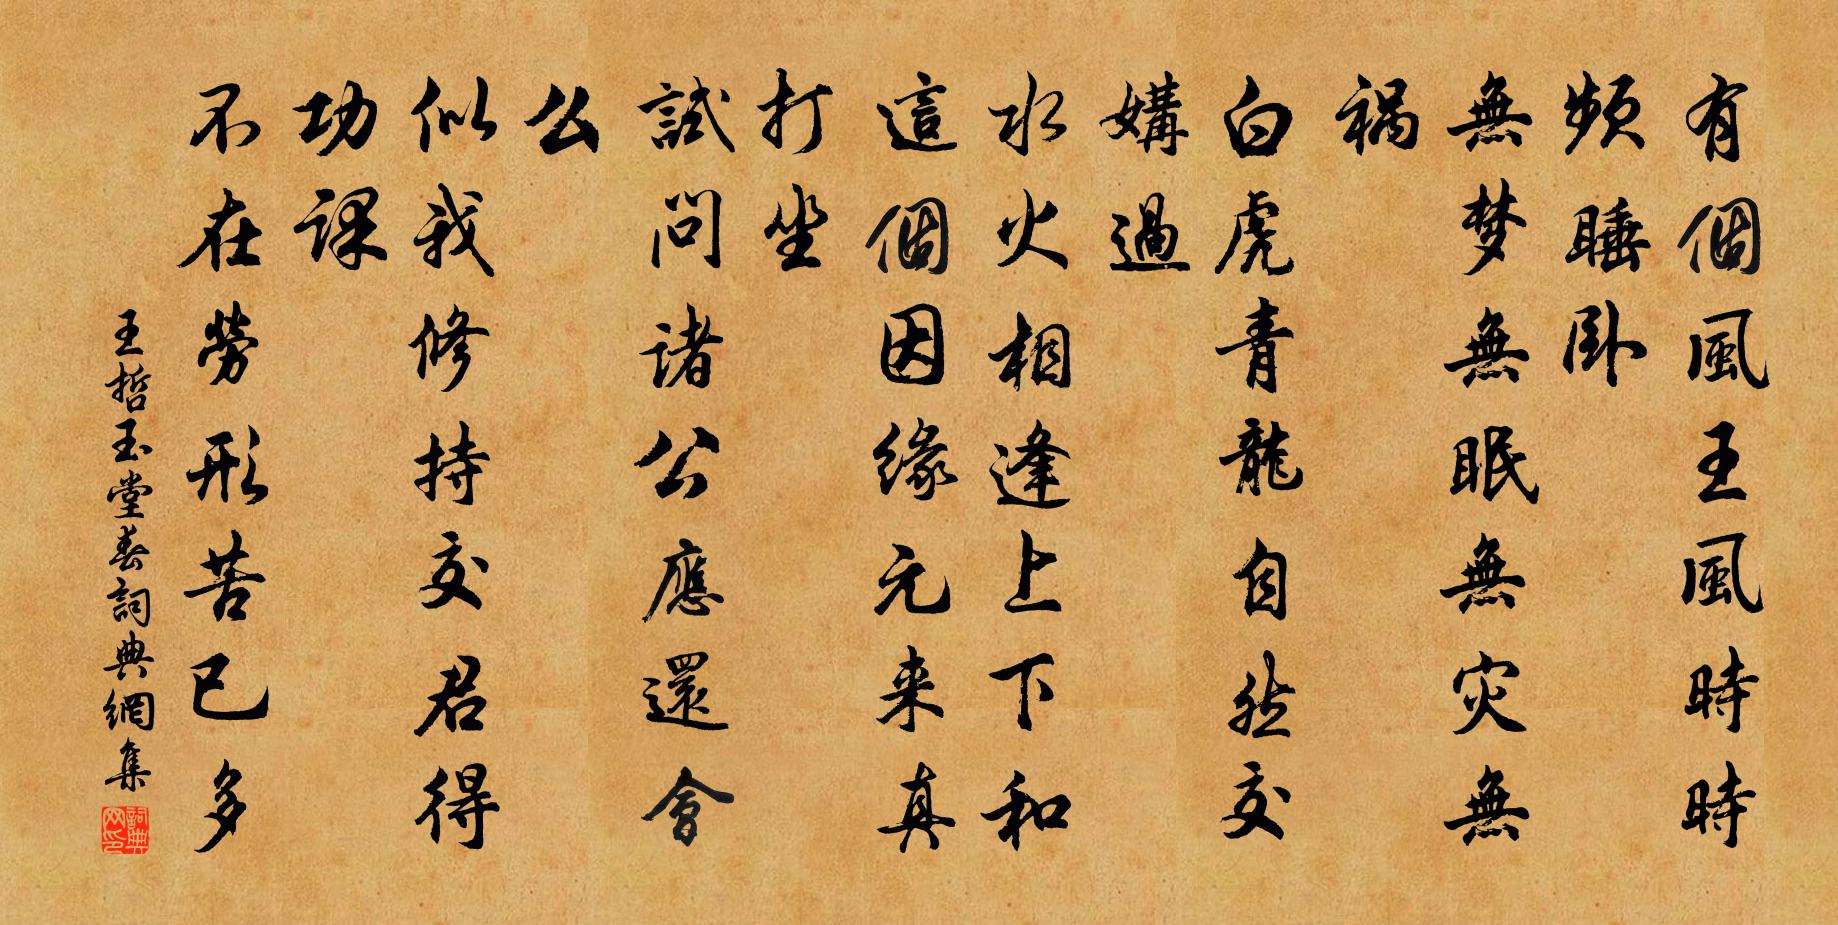 有個風王風時時
頻睡卧
無梦無眠無灾無
禍
白虎青龍自然交
媾過
水火相逢上下和
這個因緣元来真
打坐
試問諸公應還會
么
似我修持交君得
功課
不在勞形苦已多
王哲玉堂春詞典網集
詞典網印